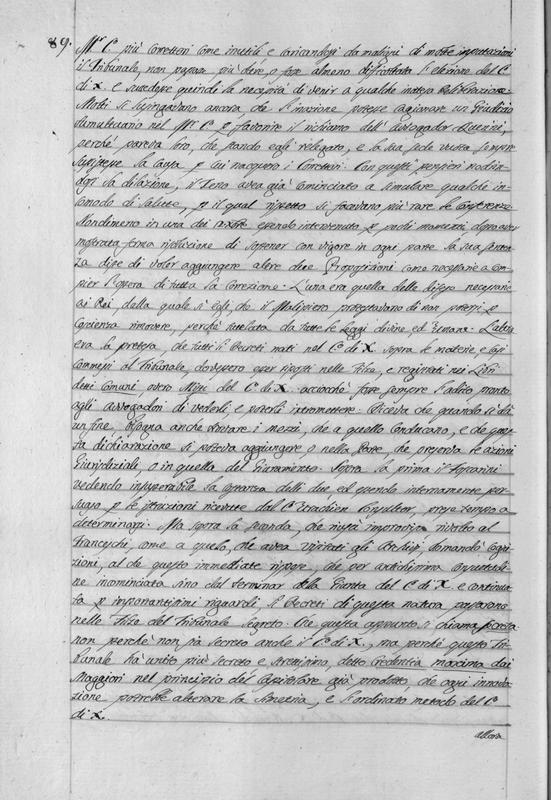 89.
M.r C. più Correttori come inutili e caricandosi da maligni di molte imputazioni
il Tribunale, non
di X. e succedere quindi la necessità di venir a qualche intiera
Molti si spiegavano ancora che l'inazione potesse cagionare un Giudizio
tumultuario nel M.r C. p favorire il richiamo dell'Avvogador Querini,
perchè pareva loro, che stando egli relegato, e la sua sede vuota, sempre
la causa, p cui nacquero i Correttori. Con questi pensieri
la dilazione, il Zeno avea già cominciato a simulare qualche in-
comodo di salute, p il qual rispetto si facevano più rare le Conferenze.
Nondimeno in una dei essendo intervenuto, p pochi momenti, dopo aver
mostrata ferma risoluzione di sostener con vigore in ogni parte la sua senten-
za disse di voler aggiungere altre due Proposizioni come necessarie a com-
pier l'opera di tutta la Correzione. L'una era quella delle difese necessarie
ai Rei, dalla quale sì egli, che il Malipiero protestavano di non potersi p
Coscienza rimovere, perchè tutelata da tutte le Leggi divine ed Umane. L'altra
era la pretesa, che tutti li Decreti nati nel C di X. sopra le materie, e casi
commessi al Tribunale, dovessero esser riposti nelle Filze, e registrati nei Libri
detti Comuni, overo Misti del C di X. acciocchè fosse sempre l'adito pronto
agli Avvogadori di vederli, e poterli intromettere. Diceva che quando si dà
un fine, bisogna anche prestare i mezzi, che a quello conducano, e che questa
dichiarazione si poteva aggiungere o nella Parte, che preserva le azioni
Giurisdiziali, o in quella del Giuramento. Sopra la prima il
vedendo insuperabile la costanza delli due, ed essendo internamente per-
suaso p le istruzioni ricevute dal C. Consultor, prese tempo a
determinarsi. Ma sopra la seconda, che riuscì improvisa, rivolto al
Franceschi, come a quello, che avea visitati gli Archivj, domandò cogni-
zioni, al che questo immediate rispose, che per antichissima consuetudi-
ne incominciata sino dal terminar della Zonta del C di X. e continua-
ta p importantissimi riguardi, li Decreti di questa natura passavano
nelle Filze del Tribunale Segreto. Che questo appunto si chiama
non perchè non sia secreto anche il C di X., ma perchè questo Tri-
bunale ha unito più secreto e strettissimo, detto Credentia maxima dai
Maggiori nel principio del Capitolare già prodotto, che ogni innova-
zione potrebbe alterare la sincerità, e l'ordinato metodo del C
di X.
allora